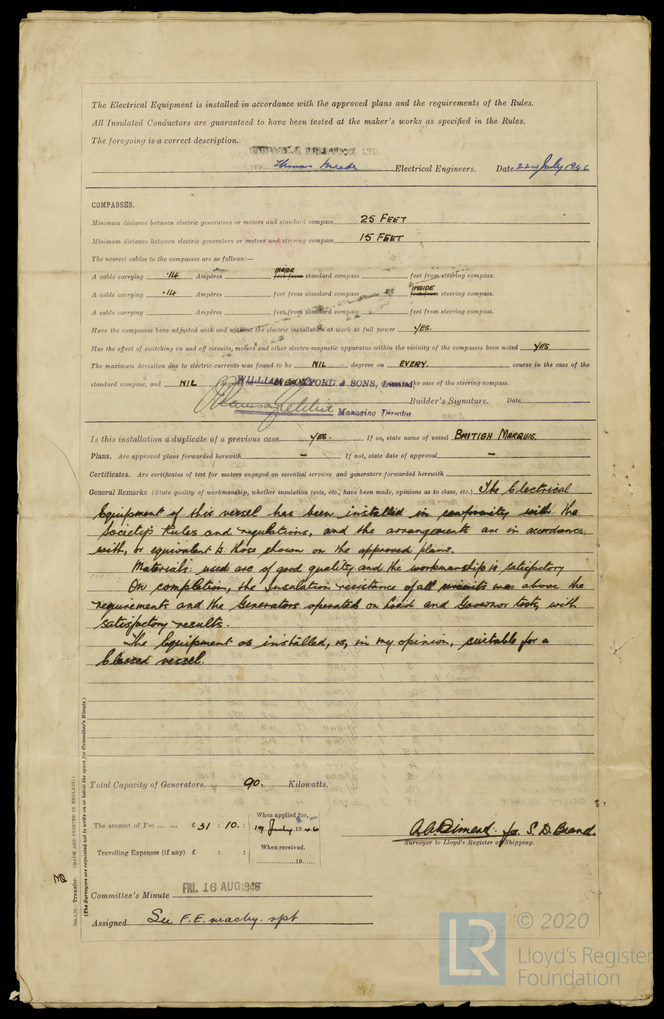 The Electrical Equipment is installed in accordance with the approved plans and the requirements of the Rules.
All Insulated Conductors are guaranteed to have been tested at the maker's works as specified in the Rules.
The foregoing is a correct description.
Electrical Engineers. Date 22nd July 1946
COMPASSES.
Minimum distance between electric generators or motors and standard compass 25 FEET
Minimum distance between electric generators or motors and steering compass 15 FEET
The nearest cables to the compasses are as follows:—
A cable carrying ·14 Ampères INSIDE feet from standard compass feet from steering compass.
A cable carrying ·14 Ampères feet from standard compass INSIDE feet from steering compass.
A cable carrying Ampères feet from standard compass feet from steering compass.
Have the compasses been adjusted with and without the electric installation at work at full power YES.
Has the effect of switching on and off circuits, motors and other electro-magnetic apparatus within the vicinity of the compasses been noted YES
The maximum deviation due to electric currents was found to be NIL degrees on EVERY. course in the case of the
standard compass, and NIL degrees on EVERY course in the case of the steering compass.
WILLIAM DOXFORD & SONS, Limited
Builder's Signature. Date
Managing Director.
Is this installation a duplicate of a previous case YES. If so, state name of vessel BRITISH MARQUIS.
Plans. Are approved plans forwarded herewith – If not, state date of approval –
Certificates. Are certificates of test for motors engaged on essential services and generators forwarded herewith
General Remarks (State quality of workmanship, whether insulation tests, etc., have been made, opinions as to class, etc.) The Electrical
Equipment of this vessel has been installed in conformity with the
Society's Rules and regulations, and the arrangements are in accordance
with, or equivalent to those shown on the approved plans.
Materials used are of good quality and the workmanship is satisfactory
On completion, the Insulation resistance of all circuits was above the
requirements and the Generators operated on load and Governor tests, with
satisfactory results.
The Equipment as installed, is, in my opinion, suitable for a
Classed vessel.
Total Capacity of Generators 90. Kilowatts.
The amount of Fee ... ... £ 31 : 10 :
When applied for,
19 July 1946
Travelling Expenses (if any) £ : :
When received.
19
A. C. Diment. for S. D. Brand.
Surveyor to Lloyd's Register of Shipping.
Committee's Minute FRI. 16 AUG 1946
Assigned See F.E. machy. rpt
Transfer. (MADE AND PRINTED IN ENGLAND.)
(The Surveyors are requested not to write on or below the space for Committee's Minute.)
LR © 2020
Lloyd's Register
Foundation